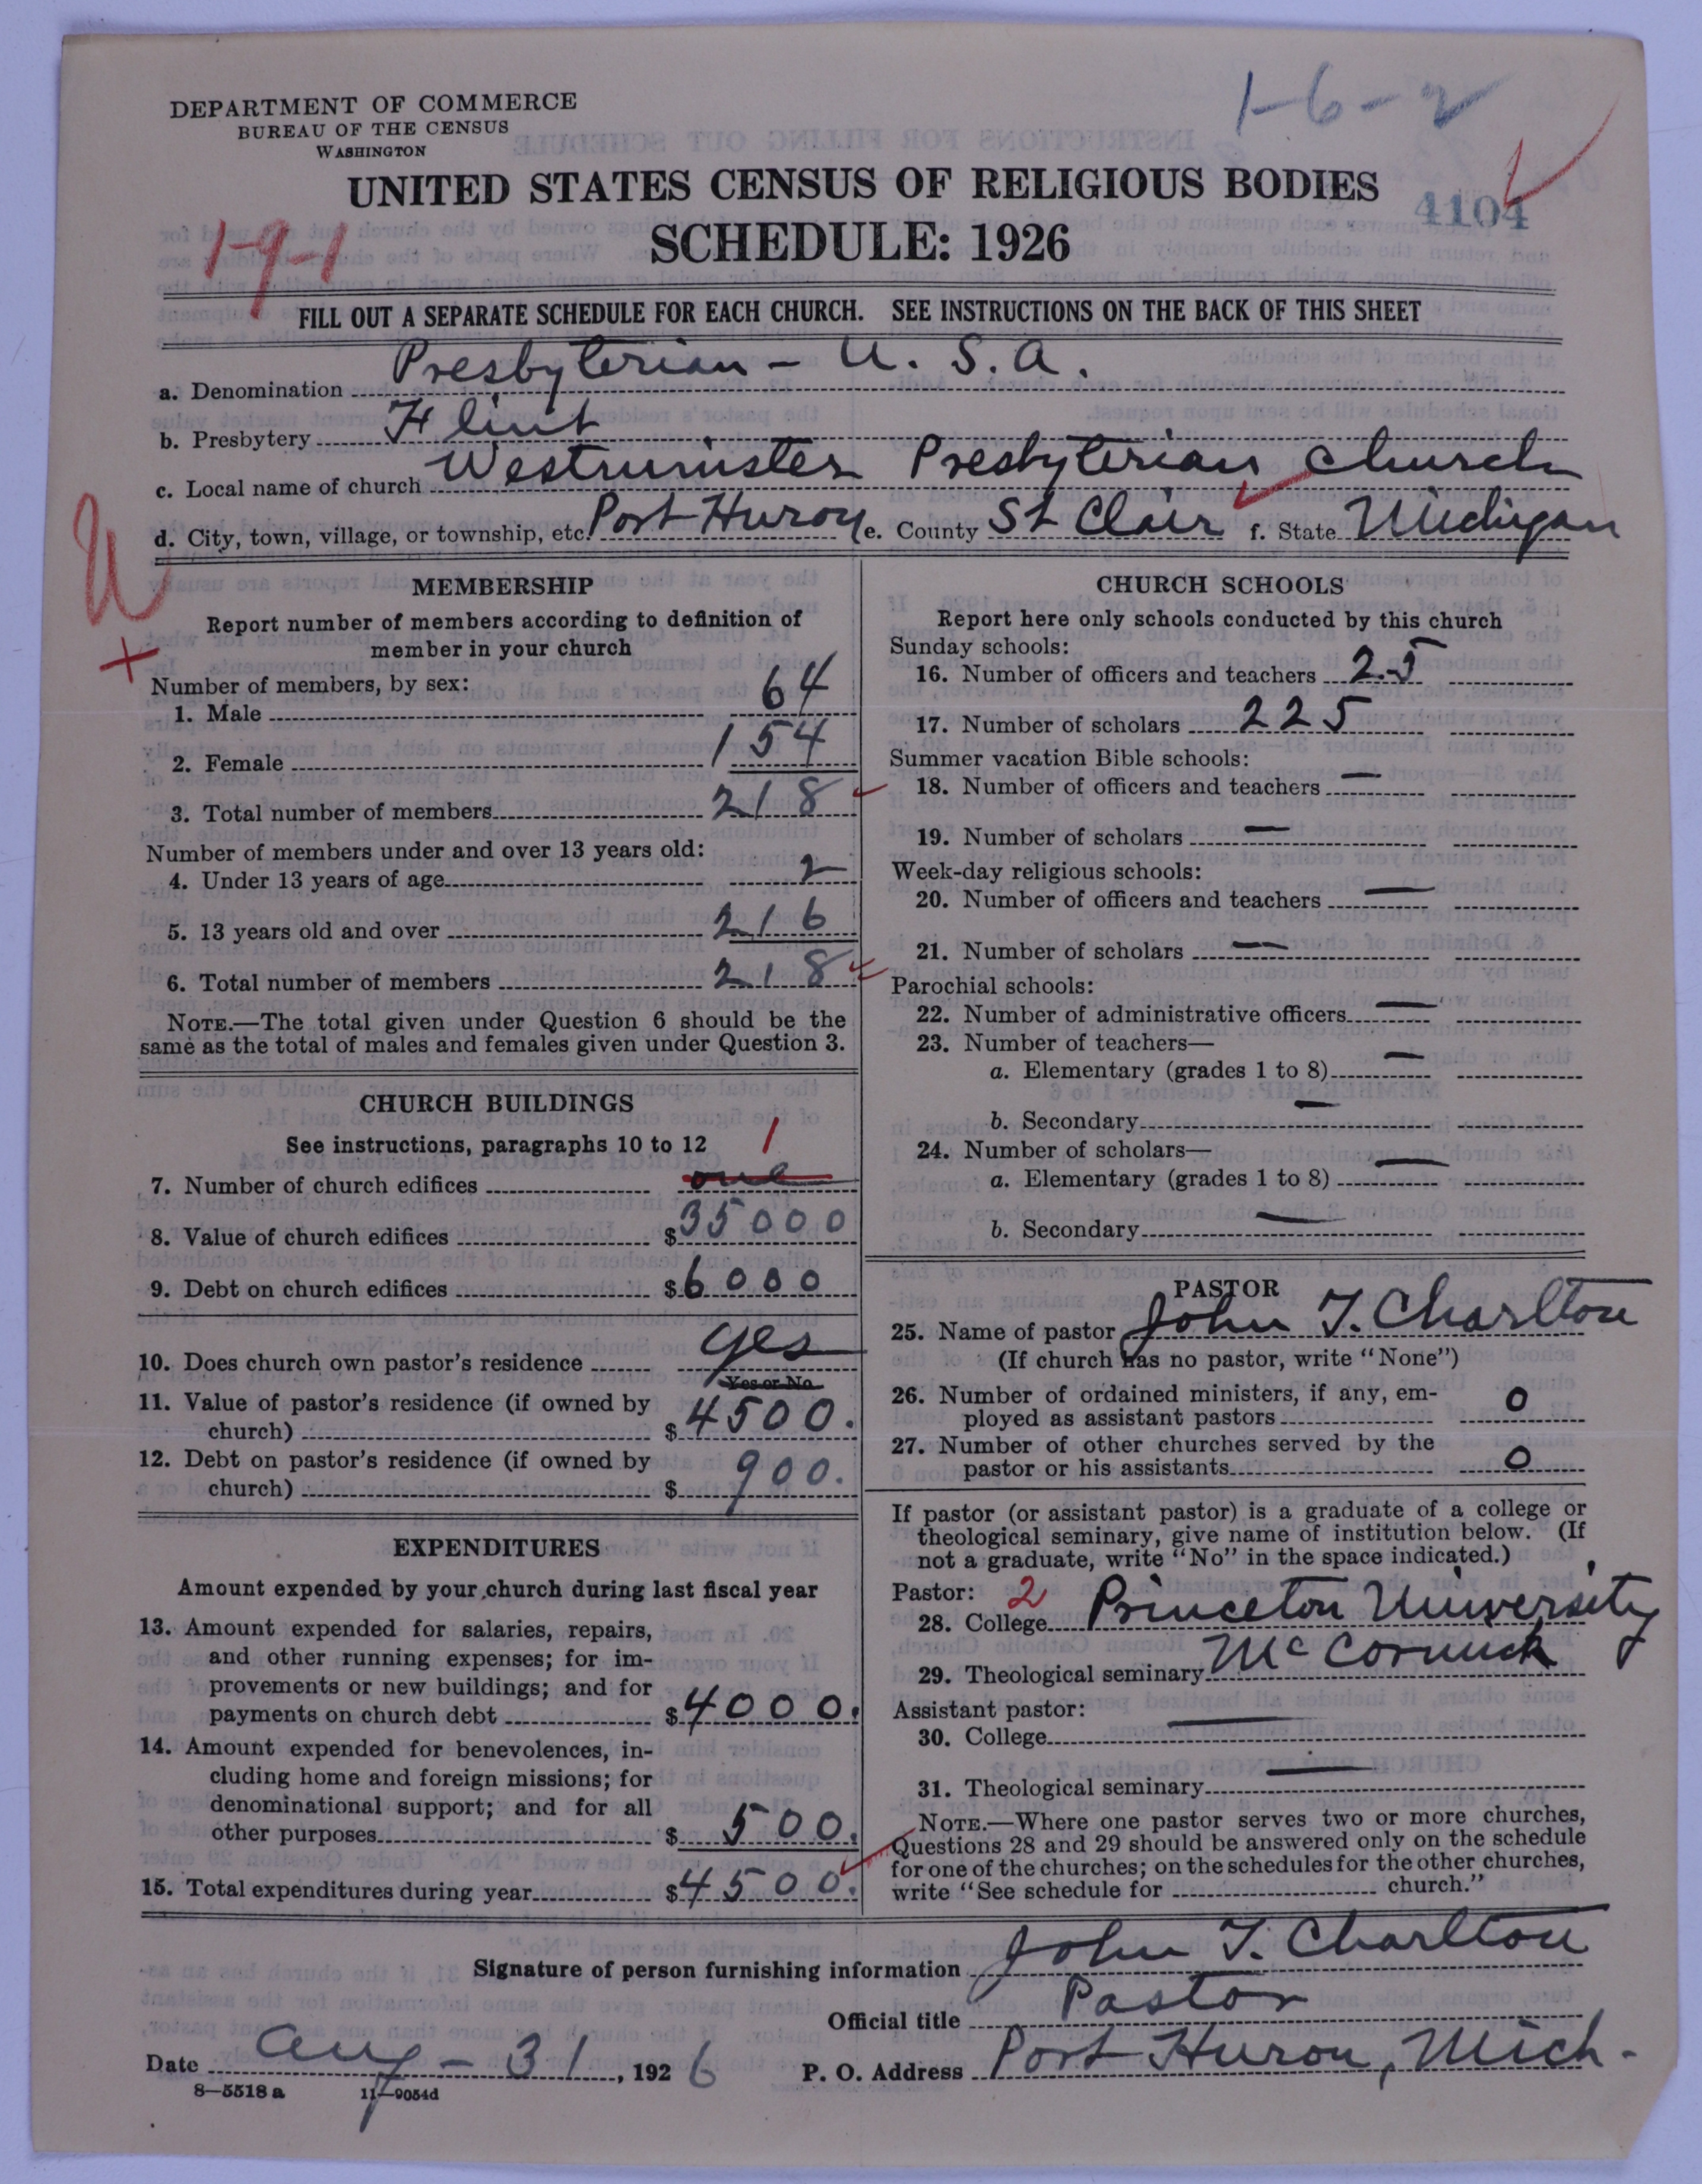 DEPARTMENT OF COMMERCE
BUREAU OF THE CENSUS
WASHINGTON
1-6-2
UNITED STATES CENSUS OF RELIGIOUS BODIES
4104
SCHEDULE: 1926
1-9-1
FILL OUT A SEPARATE SCHEDULE FOR EACH CHURCH. SEE INSTRUCTIONS ON THE BACK OF THIS SHEET
a. Denomination Presbyterian - U. S. A.
b. Presbytery Flint
c. Local name of church Westminster Presbyterian Church
d. City, town, village, or township, etc. Port Huron e. County St Clair f. State Michigan
MEMBERSHIP
Report number of members according to definition of
member in your church
Number of members, by sex:
1. Male 64
2. Female 154
3. Total number of members 218
Number of members under and over 13 years old:
4. Under 13 years of age 2
5. 13 years old and over 216
6. Total number of members 218
NOTE.—The total given under Question 6 should be the
same as the total of males and females given under Question 3.
CHURCH BUILDINGS
See instructions, paragraphs 10 to 12
1
7. Number of church edifices one
8. Value of church edifices $35000
9. Debt on church edifices $6000
10. Does church own pastor's residence yes
Yes or No
11. Value of pastor's residence (if owned by
church) $4500.
12. Debt on pastor's residence (if owned by
church) $900.
EXPENDITURES
Amount expended by your church during last fiscal year
13. Amount expended for salaries, repairs,
and other running expenses; for im-
provements or new buildings; and for
payments on church debt $4000.
14. Amount expended for benevolences, in-
cluding home and foreign missions; for
denominational support; and for all
other purposes $500.
15. Total expenditures during year $4500.
CHURCH SCHOOLS
Report here only schools conducted by this church
Sunday schools:
16. Number of officers and teachers 25
17. Number of scholars 225
Summer vacation Bible schools:
18. Number of officers and teachers —
19. Number of scholars —
Week-day religious schools:
20. Number of officers and teachers —
21. Number of scholars —
Parochial schools:
22. Number of administrative officers —
23. Number of teachers—
a. Elementary (grades 1 to 8) —
b. Secondary —
24. Number of scholars—
a. Elementary (grades 1 to 8) —
b. Secondary —
PASTOR
25. Name of pastor John T. Charlton
(If church has no pastor, write "None")
26. Number of ordained ministers, if any, em-
ployed as assistant pastors 0
27. Number of other churches served by the
pastor or his assistants 0
If pastor (or assistant pastor) is a graduate of a college or
theological seminary, give name of institution below. (If
not a graduate, write "No" in the space indicated.)
Pastor: 2
28. College Princeton University
29. Theological seminary McCormick
Assistant pastor:
30. College —
31. Theological seminary —
NOTE.—Where one pastor serves two or more churches,
Questions 28 and 29 should be answered only on the schedule
for one of the churches; on the schedules for the other churches,
write "See schedule for church."
Signature of person furnishing information John T. Charlton
Official title Pastor
Date Aug - 31, 1926 P. O. Address Port Huron, Mich.
8—5518 a 11—9054d